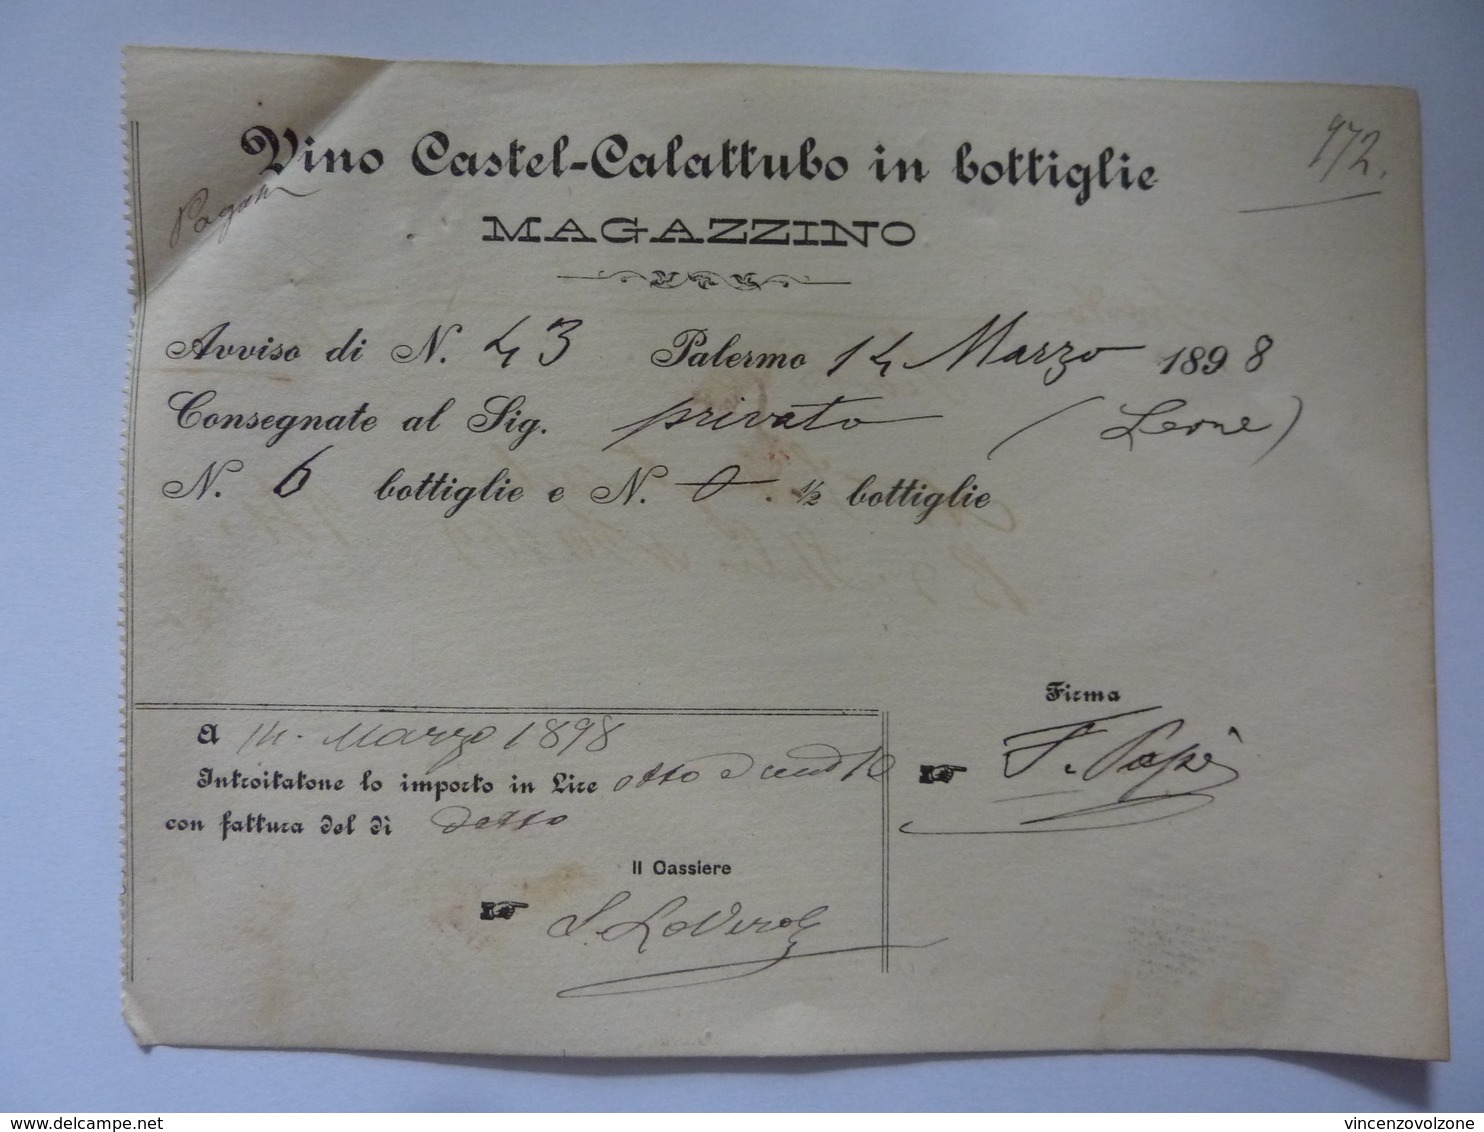 Vino Castel-Calattubo in bottiglie
972.
MAGAZZINO
Avviso di N. 43 Palermo 14 Marzo 1898
Consegnate al Sig. privato (Leone)
N. 6 bottiglie e N. 0 . ½ bottiglie
Firma
F. Papè
A 14. Marzo 1898
Introitatone lo importo in Lire otto e cent 10
con fattura del dì detto
Il Cassiere
delcampe.net
vincenzovolzone